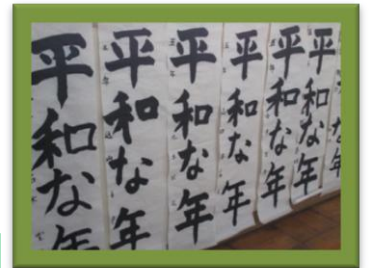 平和な年
平和な年
平和な年
平和な年
平和な年
平和な年